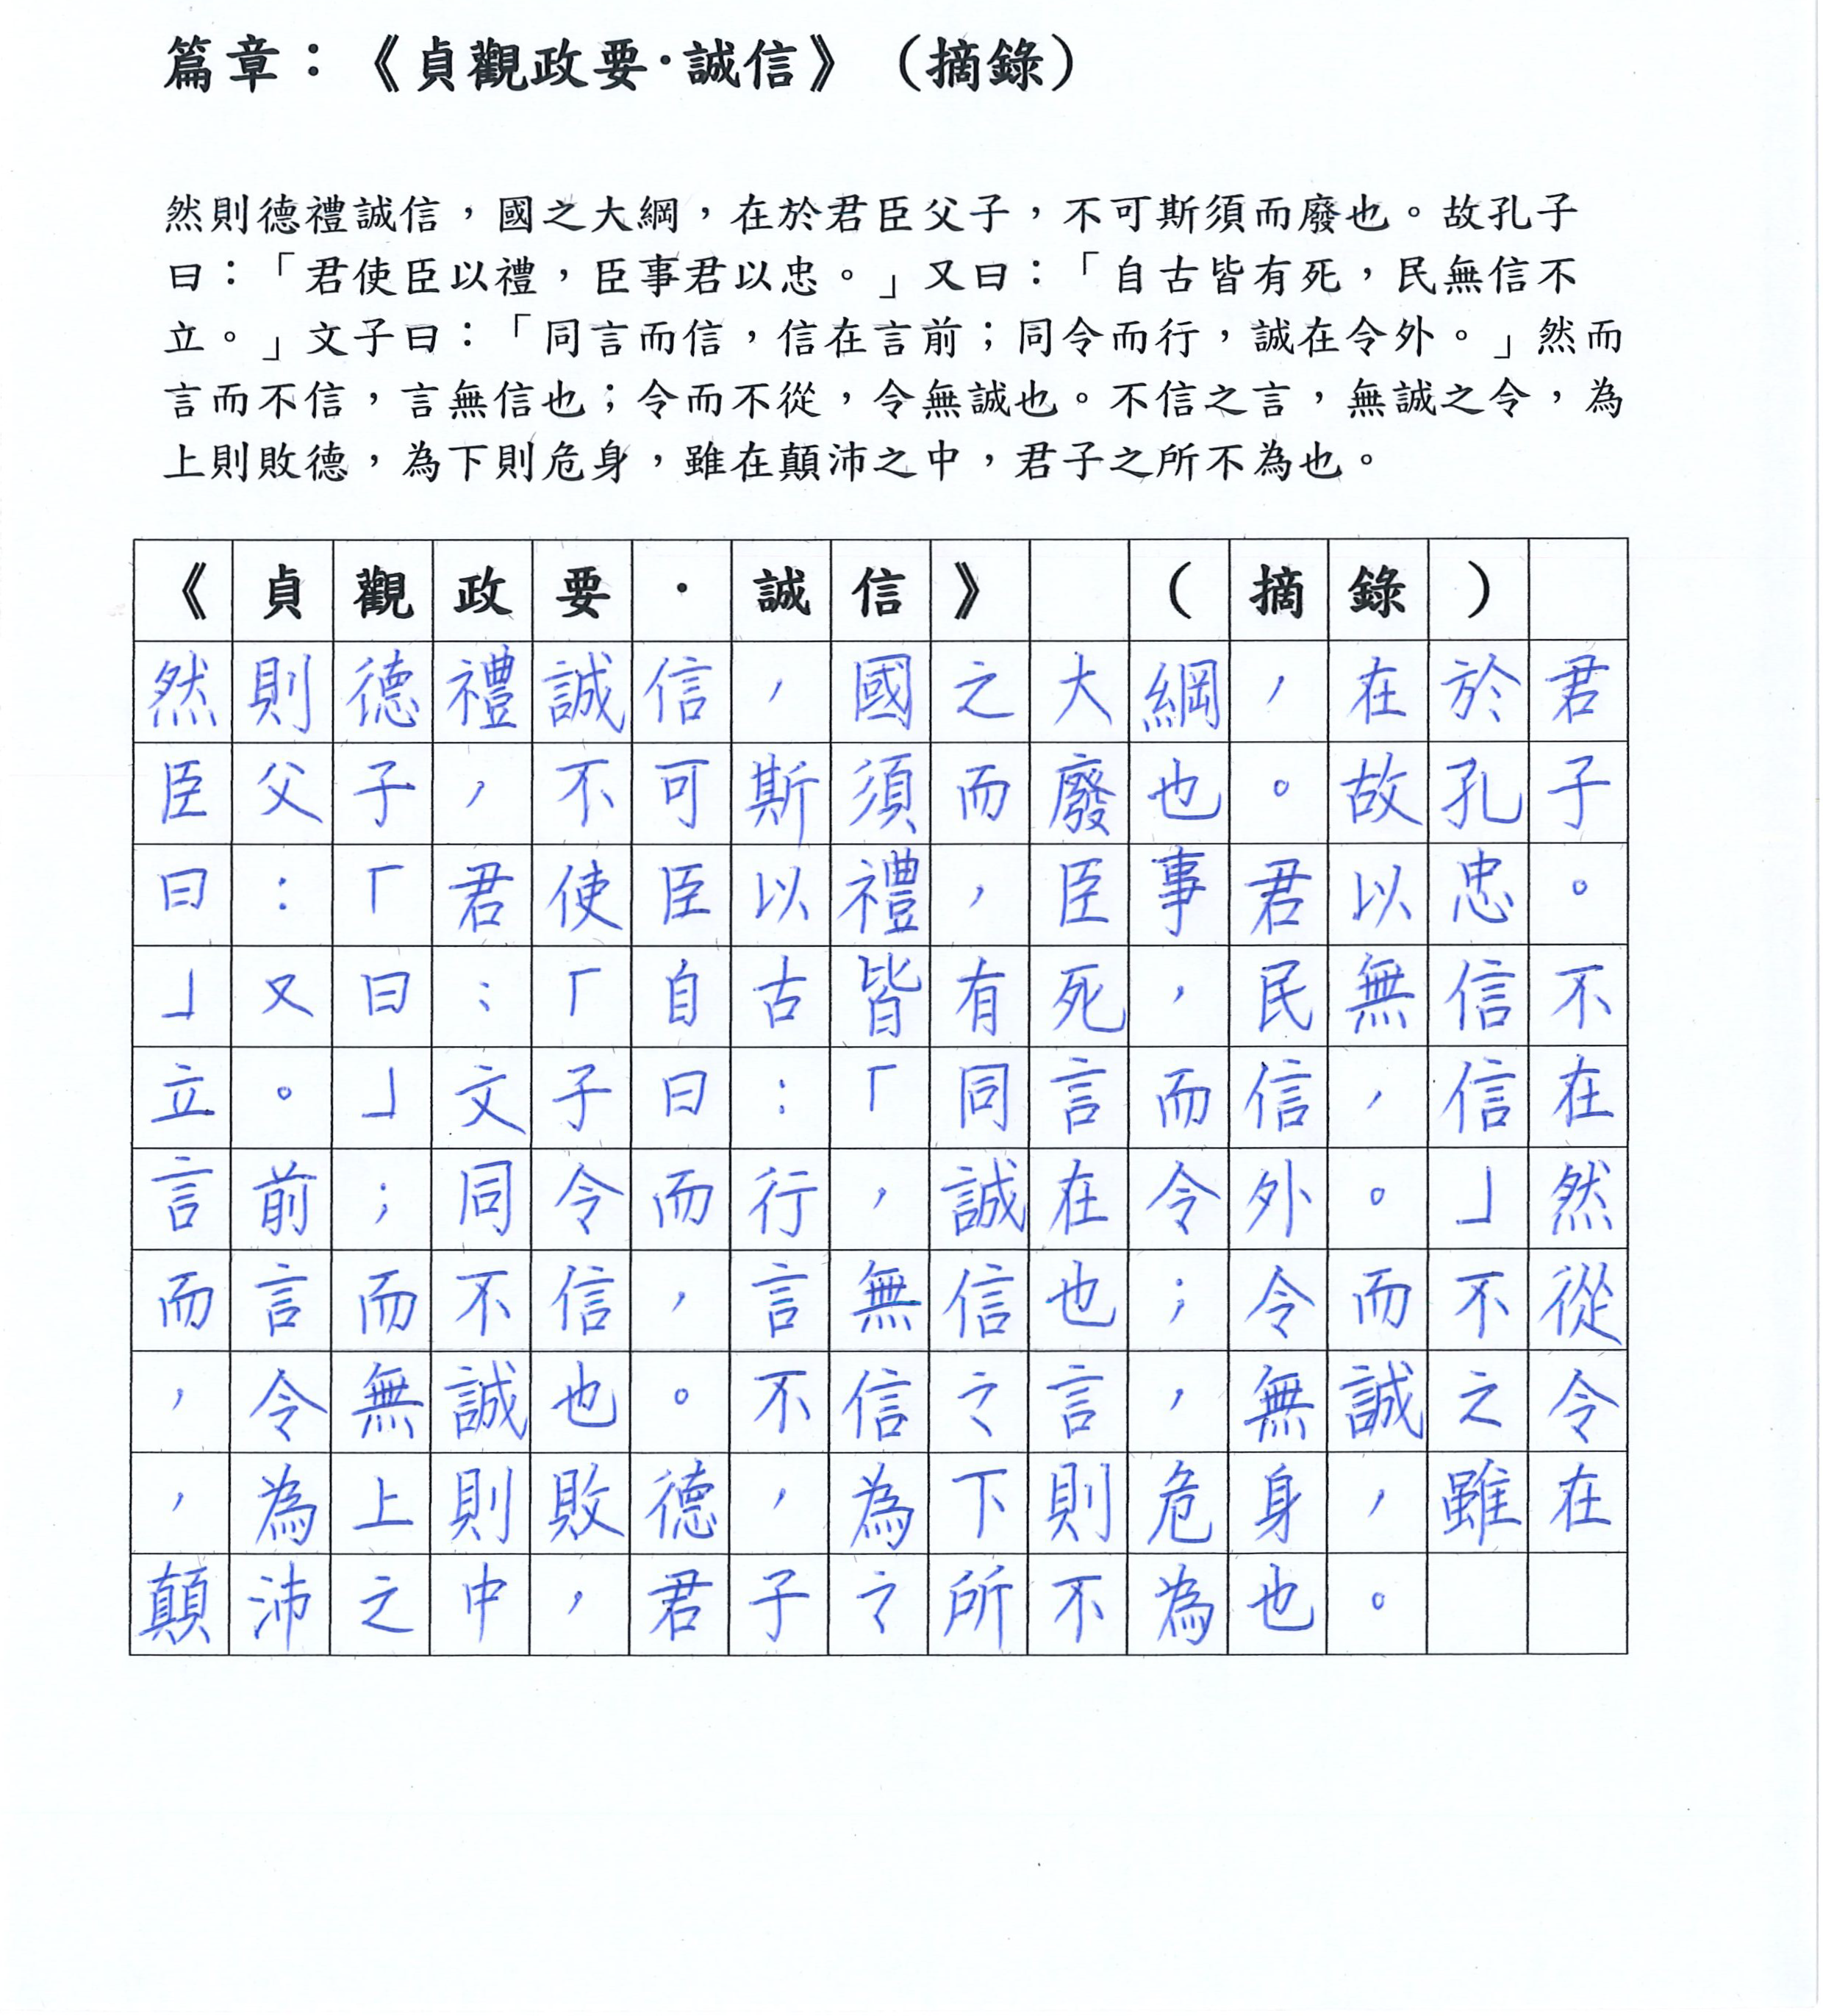 篇章：《貞觀政要·誠信》（摘錄）
然則德禮誠信，國之大綱，在於君臣父子，不可斯須而廢也。故孔子
曰：「君使臣以禮，臣事君以忠。」又曰：「自古皆有死，民無信不
立。」文子曰：「同言而信，信在言前；同令而行，誠在令外。」然而
言而不信，言無信也；令而不從，令無誠也。不信之言，無誠之令，為
上則敗德，為下則危身，雖在顛沛之中，君子之所不為也。
《貞觀政要·誠信》 （摘錄）
然則德禮誠信，國之大綱，在於君
臣父子，不可斯須而廢也。故孔子
曰：「君使臣以禮，臣事君以忠。
」又曰：「自古皆有死，民無信不
立。」文子曰：「同言而信，信在
言前；同令而行，誠在令外。」然
而言而不信，言無信也；令而不從
，令無誠也。不信之言，無誠之令
，為上則敗德，為下則危身，雖在
顛沛之中，君子之所不為也。